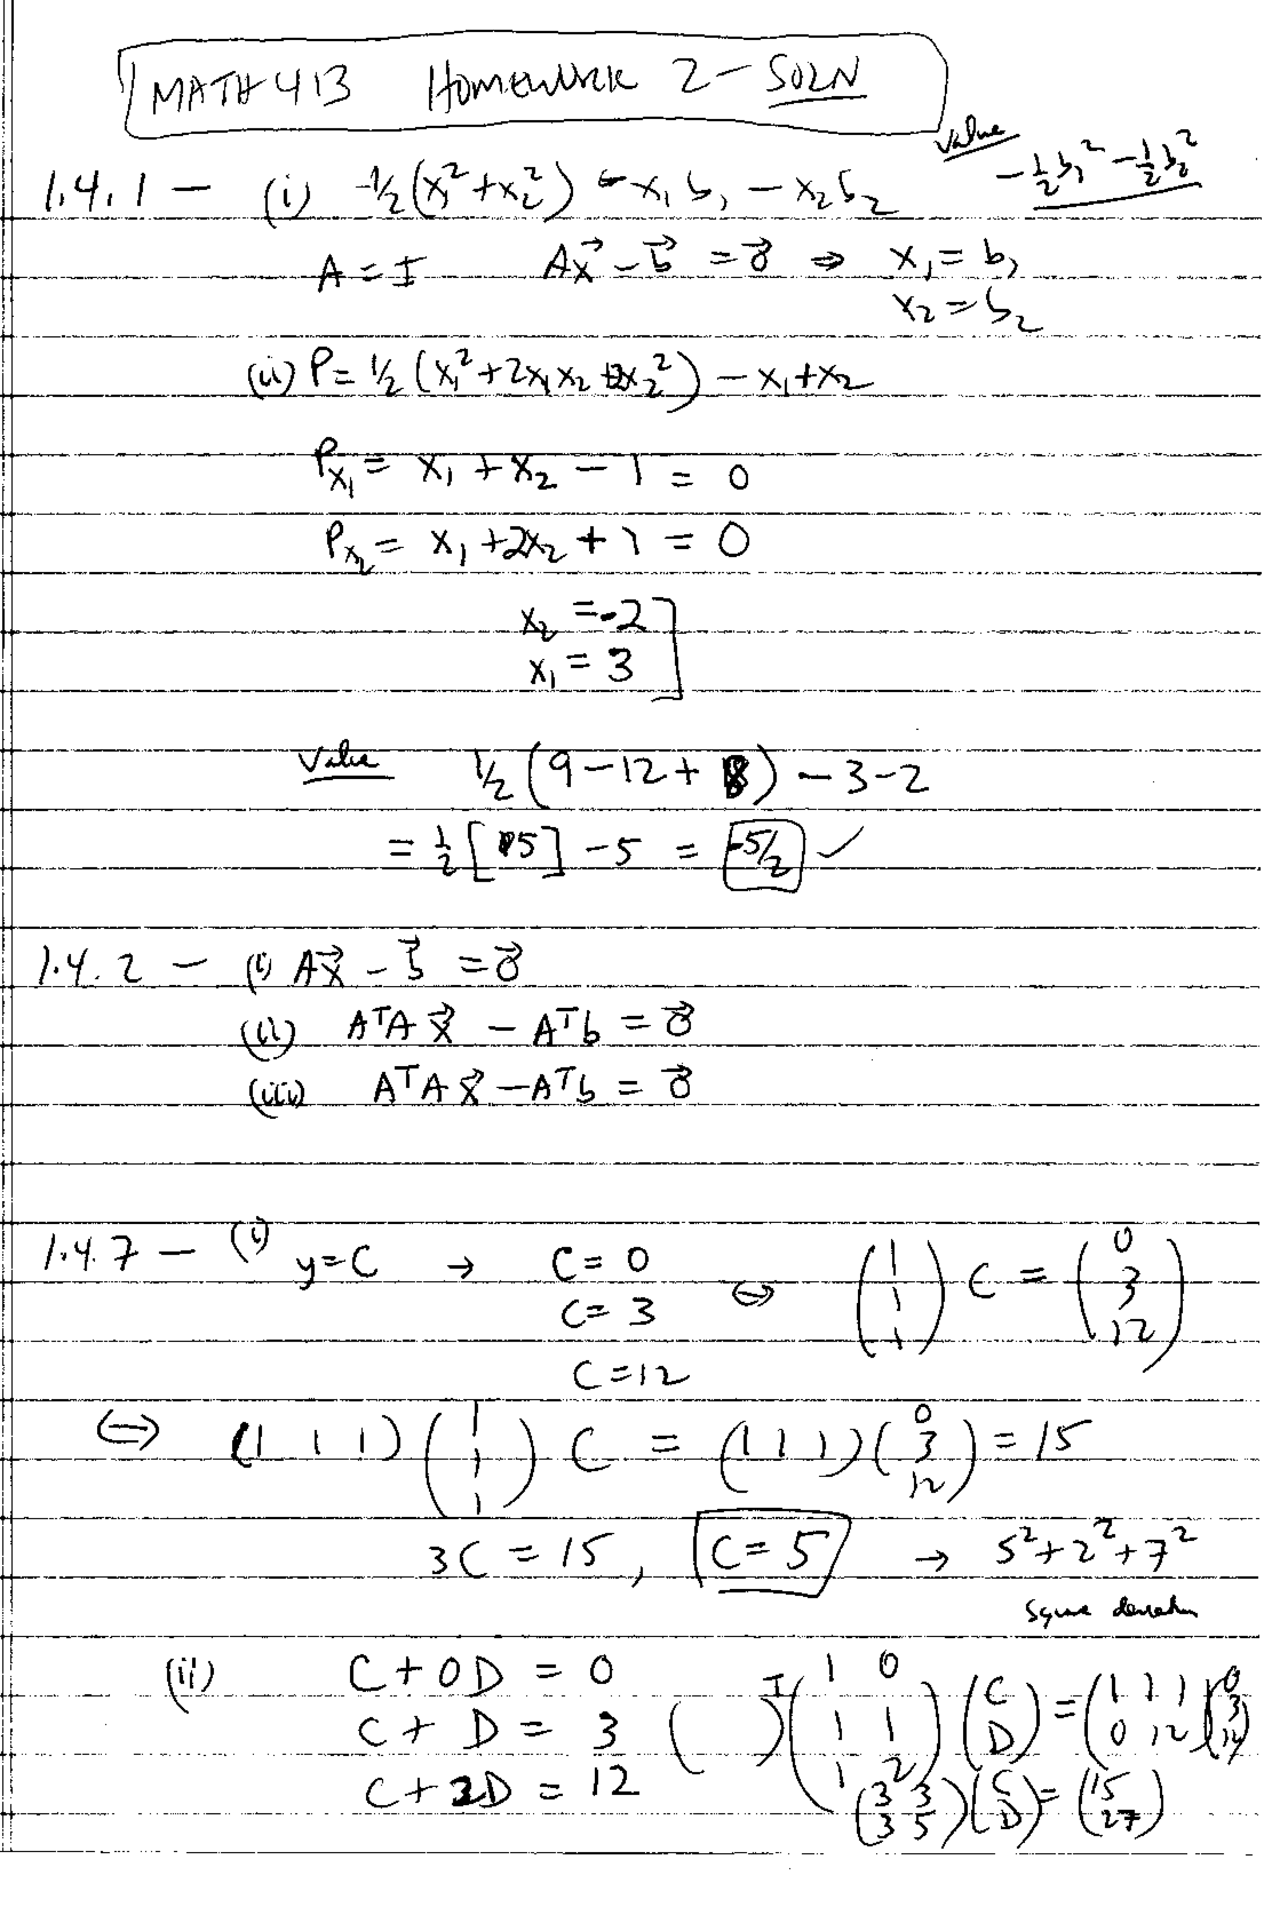 MATH 413 HOMEWORK 2 - SOLN
value -½b₁² - ½b₂²
1.4.1 - (i) ½(x₁² + x₂²) - x₁b₁ - x₂b₂
A = I Ax⃗ - b⃗ = 0⃗ ⇒ x₁ = b₁
x₂ = b₂
(ii) P = ½(x₁² + 2x₁x₂ + 2x₂²) - x₁ + x₂
Pₓ₁ = x₁ + x₂ - 1 = 0
Pₓ₂ = x₁ + 2x₂ + 1 = 0
x₂ = -2
x₁ = 3
Value ½(9 - 12 + 8) - 3 - 2
= ½[5] - 5 = -5/2 ✓
1.4.2 - (i) Ax⃗ - b⃗ = 0⃗
(ii) AᵀAx⃗ - Aᵀb = 0⃗
(iii) AᵀAx⃗ - Aᵀb = 0⃗
1.4.7 - (i) y = C → C = 0
C = 3 ⇔ (1 1 1) C = (0 3 12)
C = 12
⇔ (1 1 1)(1 1 1) C = (1 1 1)(0 3 12) = 15
3C = 15, C = 5 → 5² + 2² + 7²
square deviation
(ii) C + 0D = 0
C + D = 3 ( )ᵀ(1 0 1 1 1 2)(C D) = (1 1 1 0 1 2)(0 3 12)
C + 2D = 12
(3 3 3 5)(C D) = (15 27)